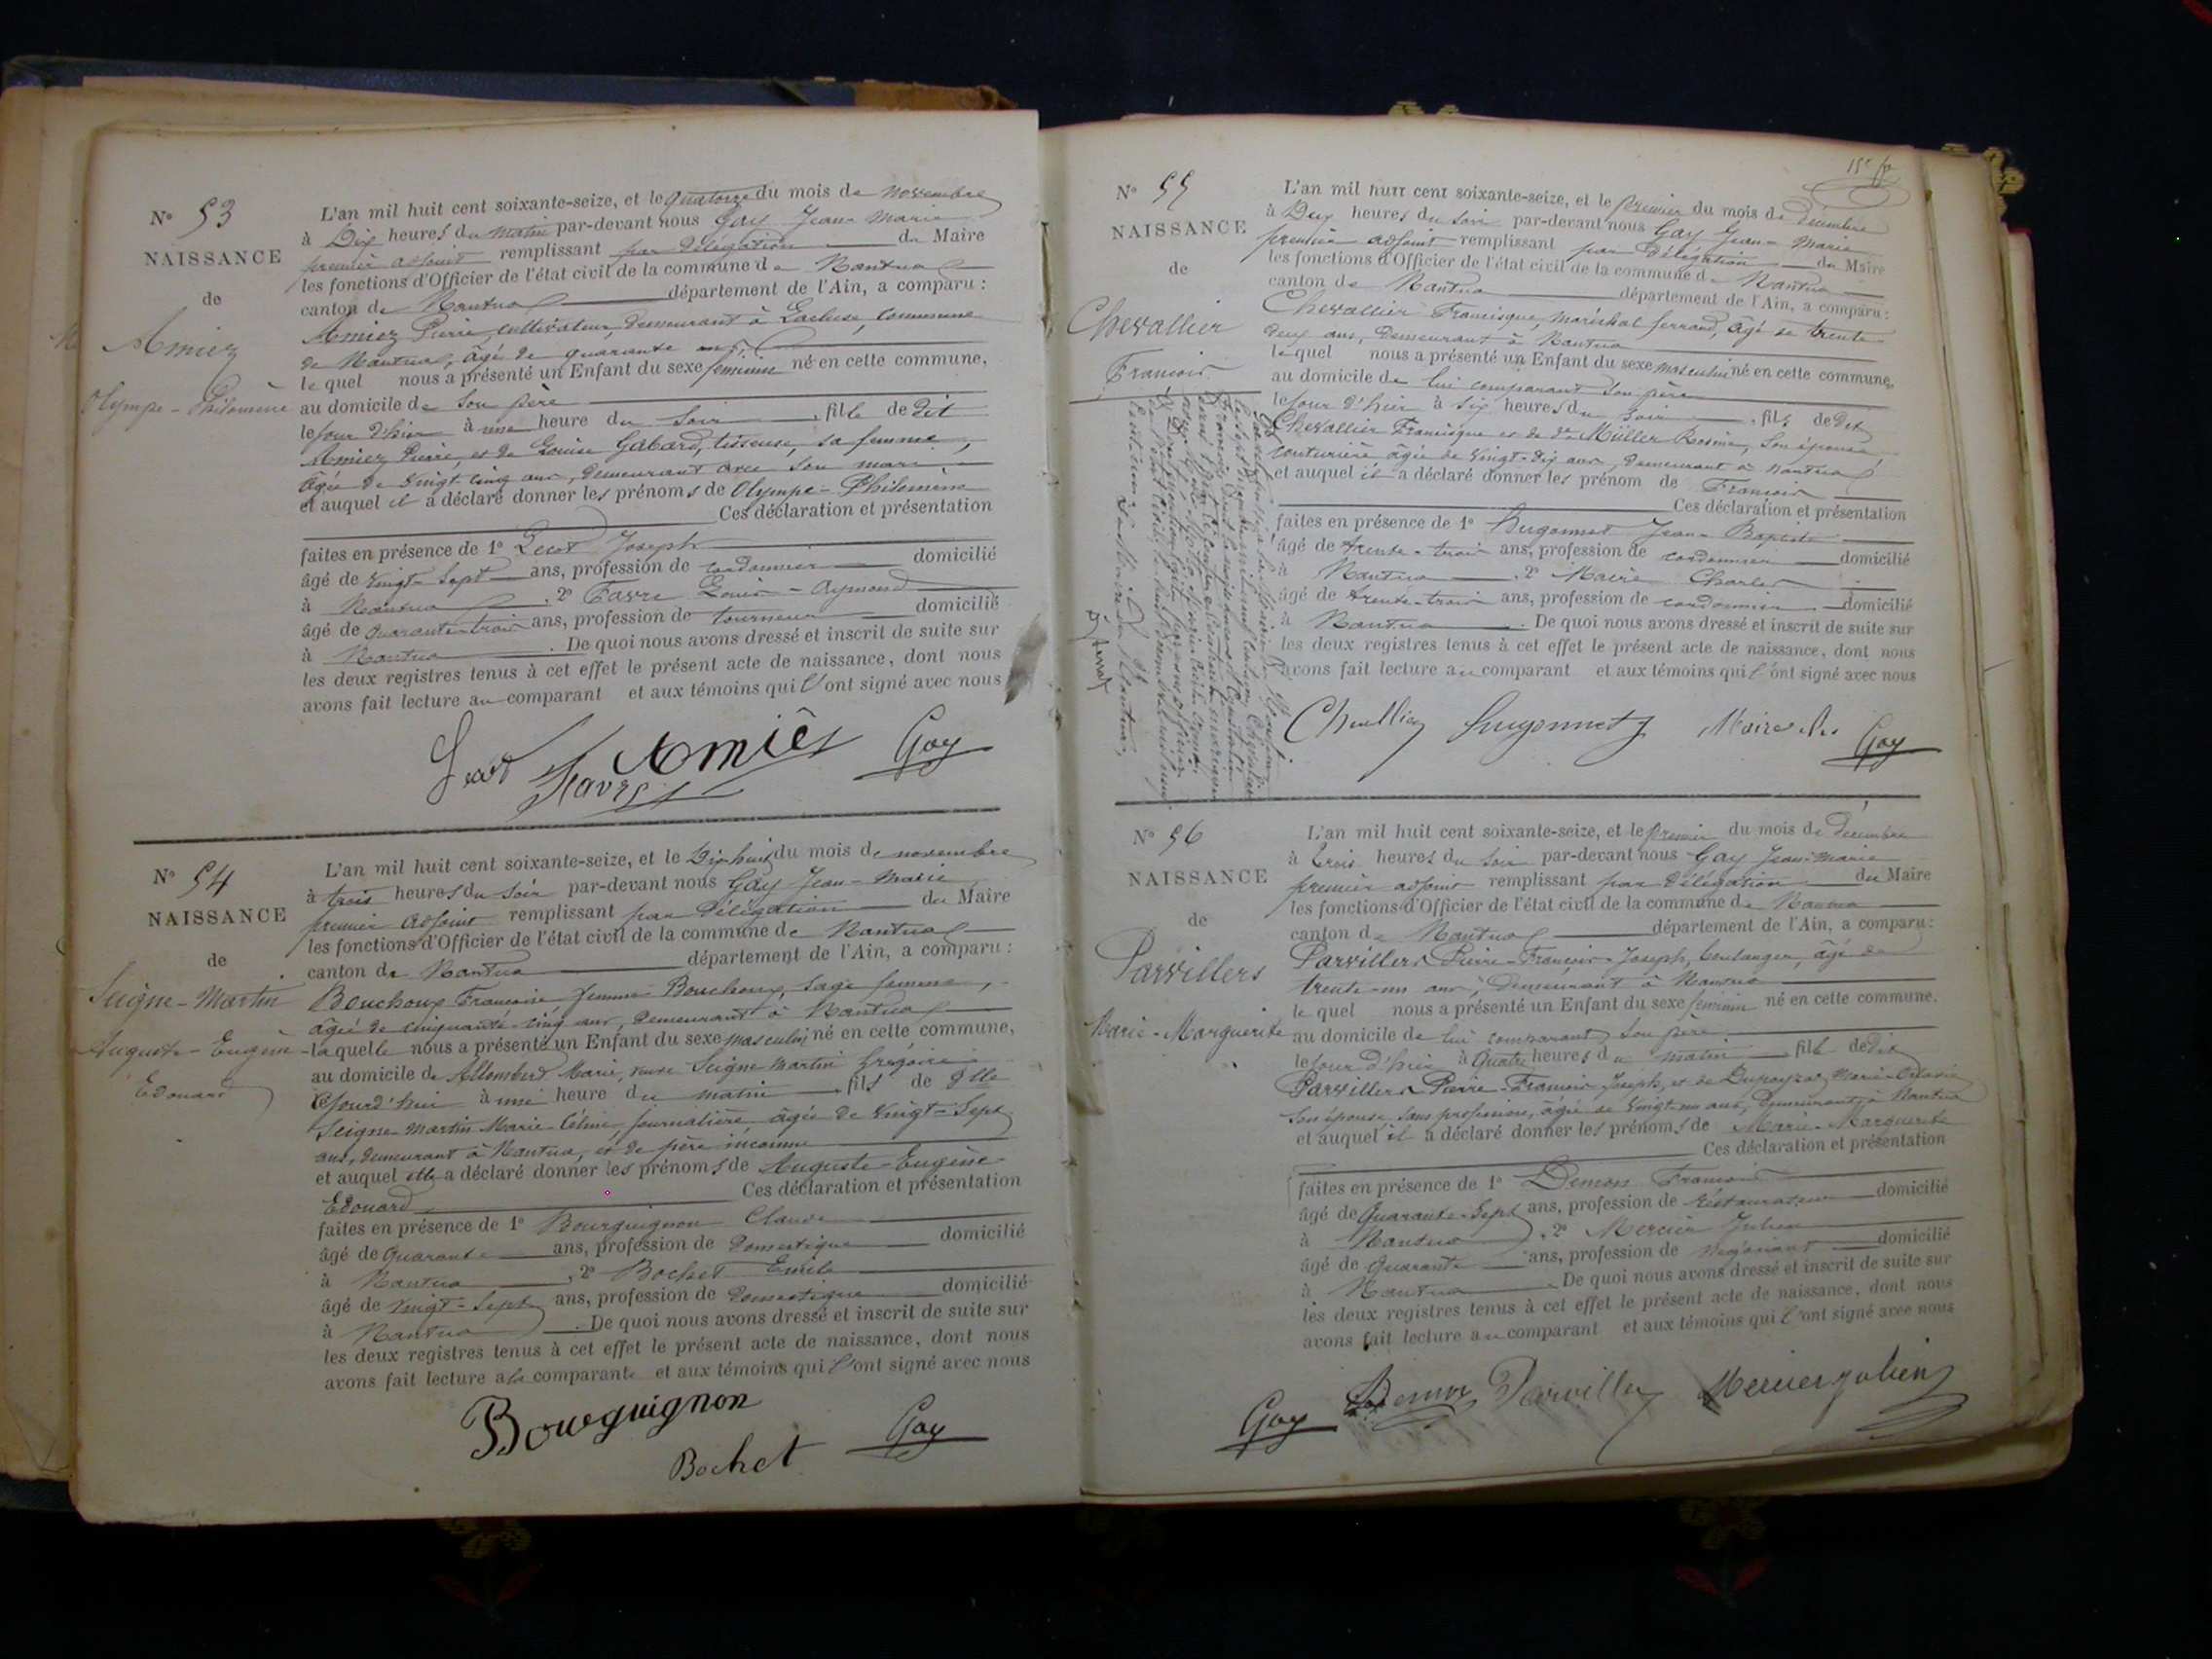 N° 53
NAISSANCE
de
Amiez
Olympe - Philomène
L'an mil huit cent soixante-seize, et le quatorze du mois de novembre
à Dix heures du matin par-devant nous Gay Jean-Marie
premier adjoint remplissant par délégation du Maire
les fonctions d'Officier de l'état civil de la commune de Nantua
canton de Nantua département de l'Ain, a comparu :
Amiez Pierre, cultivateur, demeurant à Lacluse, commune
de Nantua, âgé de quarante ans,
lequel nous a présenté un Enfant du sexe féminin né en cette commune,
au domicile de son père
le jour d'hier à une heure du soir, fille de dit
Amiez Pierre, et de Louise Gabard, tisseuse, sa femme,
âgée de vingt-cinq ans, demeurant avec son mari
et auquel il a déclaré donner les prénoms de Olympe-Philomène
Ces déclaration et présentation
faites en présence de 1° Joseph
âgé de vingt-sept ans, profession de cordonnier domicilié
à Nantua, 2° Favre Louis-Aymond
âgé de quarante-trois ans, profession de tourneur domicilié
à Nantua. De quoi nous avons dressé et inscrit de suite sur
les deux registres tenus à cet effet le présent acte de naissance, dont nous
avons fait lecture au comparant et aux témoins qui l'ont signé avec nous
Favre Amiez Gay
N° 54
NAISSANCE
de
Seigne-Martin
Auguste-Eugène
Edouard
L'an mil huit cent soixante-seize, et le Dix-huit du mois de novembre
à trois heures du soir par-devant nous Gay Jean-Marie
premier adjoint remplissant par délégation du Maire
les fonctions d'Officier de l'état civil de la commune de Nantua
canton de Nantua département de l'Ain, a comparu :
Bouchoux Françoise femme Bouchoux, sage femme,
âgée de cinquante-cinq ans, demeurant à Nantua
laquelle nous a présenté un Enfant du sexe masculin né en cette commune,
au domicile de Allombert Marie, veuve Seigne-Martin Grégoire
cejourd'hui à une heure du matin, fils de Dlle
Seigne-Martin Marie-Céline journalière, âgée de vingt-sept
ans, demeurant à Nantua, et de père inconnu
et auquel elle a déclaré donner les prénoms de Auguste-Eugène
Edouard Ces déclaration et présentation
faites en présence de 1° Bourguignon Claude
âgé de quarante ans, profession de domestique domicilié
à Nantua, 2° Bochet Emile
âgé de vingt-sept ans, profession de domestique domicilié
à Nantua. De quoi nous avons dressé et inscrit de suite sur
les deux registres tenus à cet effet le présent acte de naissance, dont nous
avons fait lecture à la comparante et aux témoins qui l'ont signé avec nous
Bourguignon
Bochet Gay
N° 55
NAISSANCE
de
Chevallier
François
L'an mil huit cent soixante-seize, et le premier du mois de Décembre
à Deux heures du soir par-devant nous Gay Jean-Marie
premier adjoint remplissant par délégation du Maire
les fonctions d'Officier de l'état civil de la commune de Nantua
canton de Nantua département de l'Ain, a comparu :
Chevallier Francisque, maréchal ferrand, âgé de trente-
deux ans, demeurant à Nantua
lequel nous a présenté un Enfant du sexe masculin né en cette commune,
au domicile de lui comparant son père
le jour d'hier à six heures du soir, fils de dit
Chevallier Francisque et de Müller Rosine, son épouse,
couturière âgée de vingt-dix ans, demeurant à Nantua
et auquel il a déclaré donner les prénom de François
Ces déclaration et présentation
faites en présence de 1° Hugonnet Jean-Baptiste
âgé de trente-trois ans, profession de cordonnier domicilié
à Nantua, 2° Maire Charles
âgé de trente-trois ans, profession de cordonnier domicilié
à Nantua. De quoi nous avons dressé et inscrit de suite sur
les deux registres tenus à cet effet le présent acte de naissance, dont nous
avons fait lecture au comparant et aux témoins qui l'ont signé avec nous
Hugonnet Gay
N° 56
NAISSANCE
de
Parvillers
Marie-Marguerite
L'an mil huit cent soixante-seize, et le premier du mois de Décembre
à trois heures du soir par-devant nous Gay Jean-Marie
premier adjoint remplissant par délégation du Maire
les fonctions d'Officier de l'état civil de la commune de Nantua
canton de Nantua département de l'Ain, a comparu :
Parvillers Pierre-François-Joseph, boulanger, âgé de
trente-un ans, demeurant à Nantua
lequel nous a présenté un Enfant du sexe féminin né en cette commune.
au domicile de lui comparant son père
le jour d'hier à quatre heures du matin, fille de dit
Parvillers Pierre-François Joseph, et de Marie-Octavie
son épouse, sans profession, âgée de vingt-un ans, demeurant à Nantua
et auquel il a déclaré donner les prénoms de Marie-Marguerite
Ces déclaration et présentation
faites en présence de 1° François
âgé de quarante-sept ans, profession de restaurateur domicilié
à Nantua, 2° Mercier Julien
âgé de quarante ans, profession de négociant domicilié
à Nantua. De quoi nous avons dressé et inscrit de suite sur
les deux registres tenus à cet effet le présent acte de naissance, dont nous
avons fait lecture au comparant et aux témoins qui l'ont signé avec nous
Gay Mercier Julien